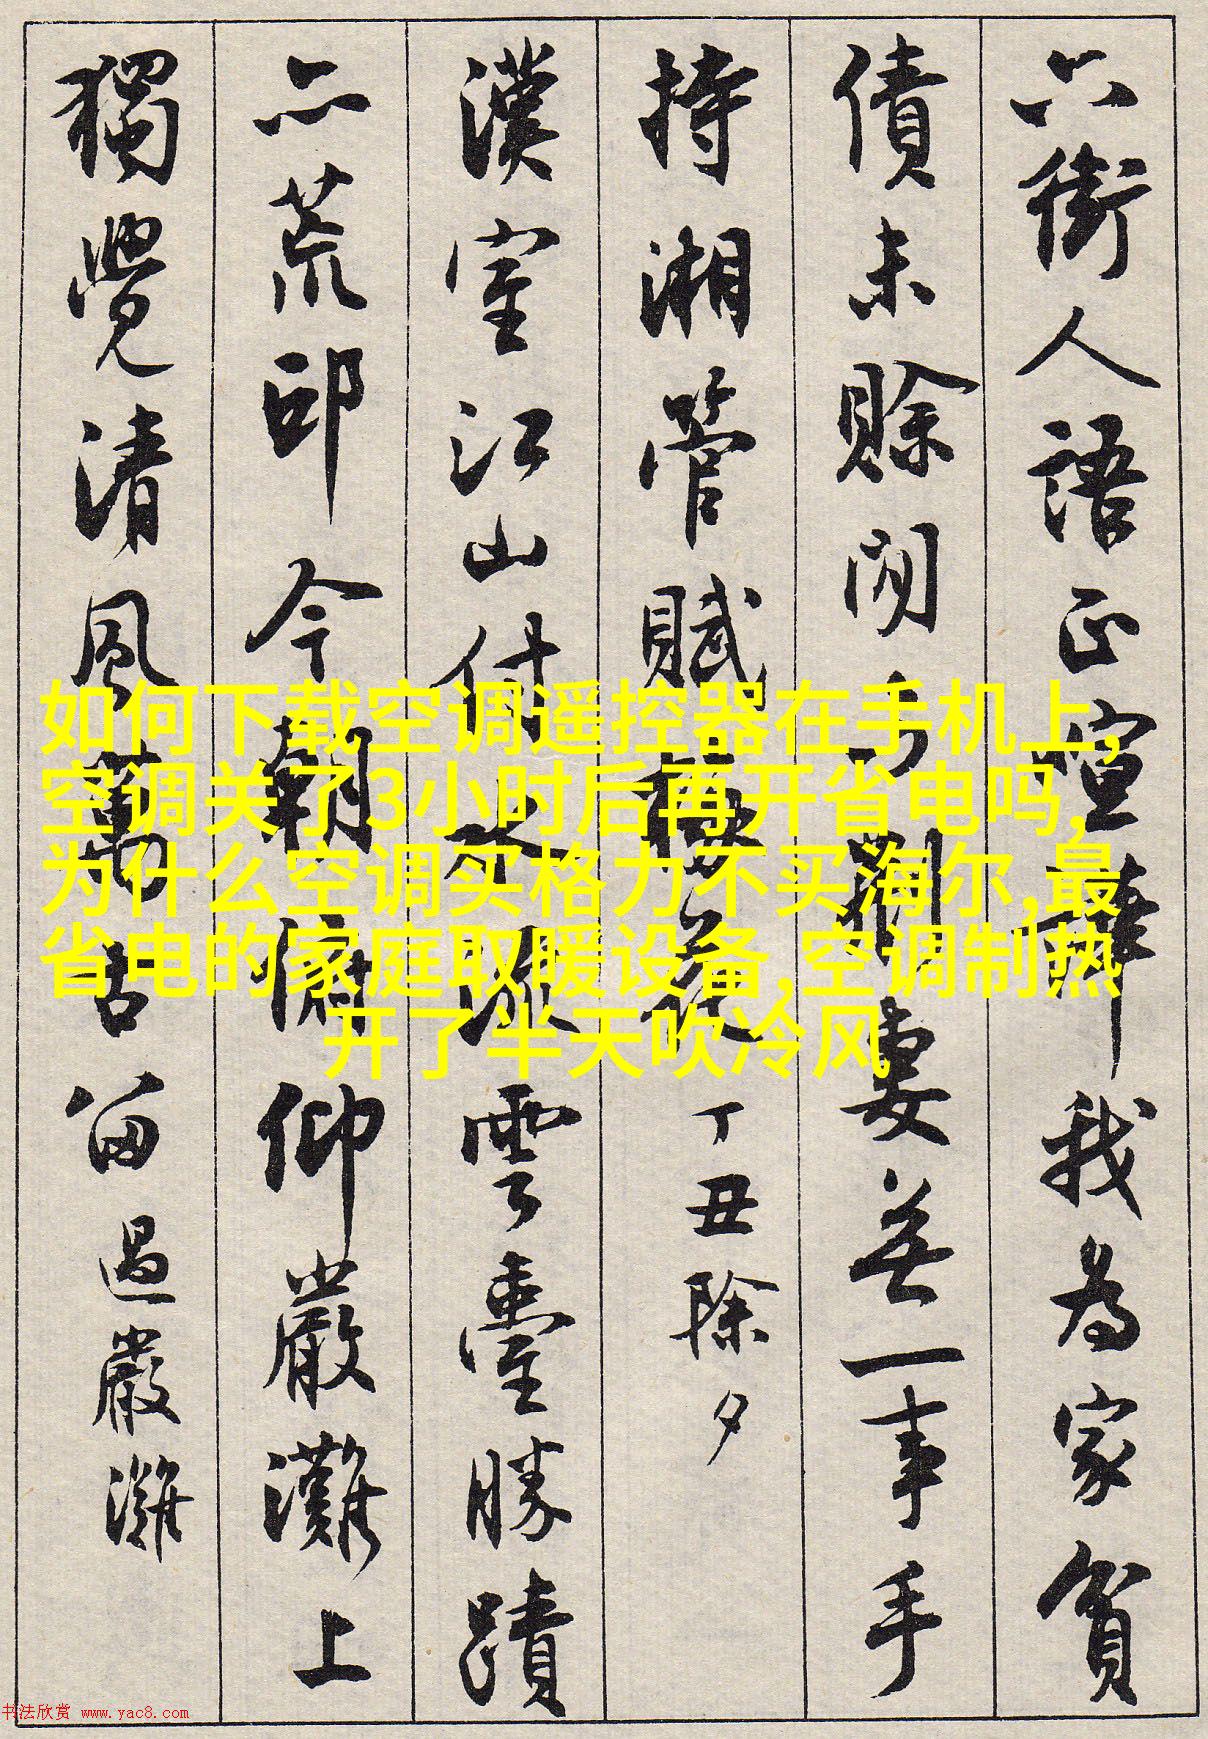 六街人語正喧譁我為家貧
債未賒閒荊妻無一事手
持湘管賦梅花丁丑除夕
漢室江山付水流雲臺勝蹟
亦荒邱今朝俯仰嚴灘上
獨覺清風萬古留過嚴灘
如何下载空调遥控器在手机上,
空调关了3小时后再开省电吗,
为什么空调买格力不买海尔,最
省电的家庭取暖设备,空调制热
开了半天吹冷风
书法欣赏 www.yac8.com